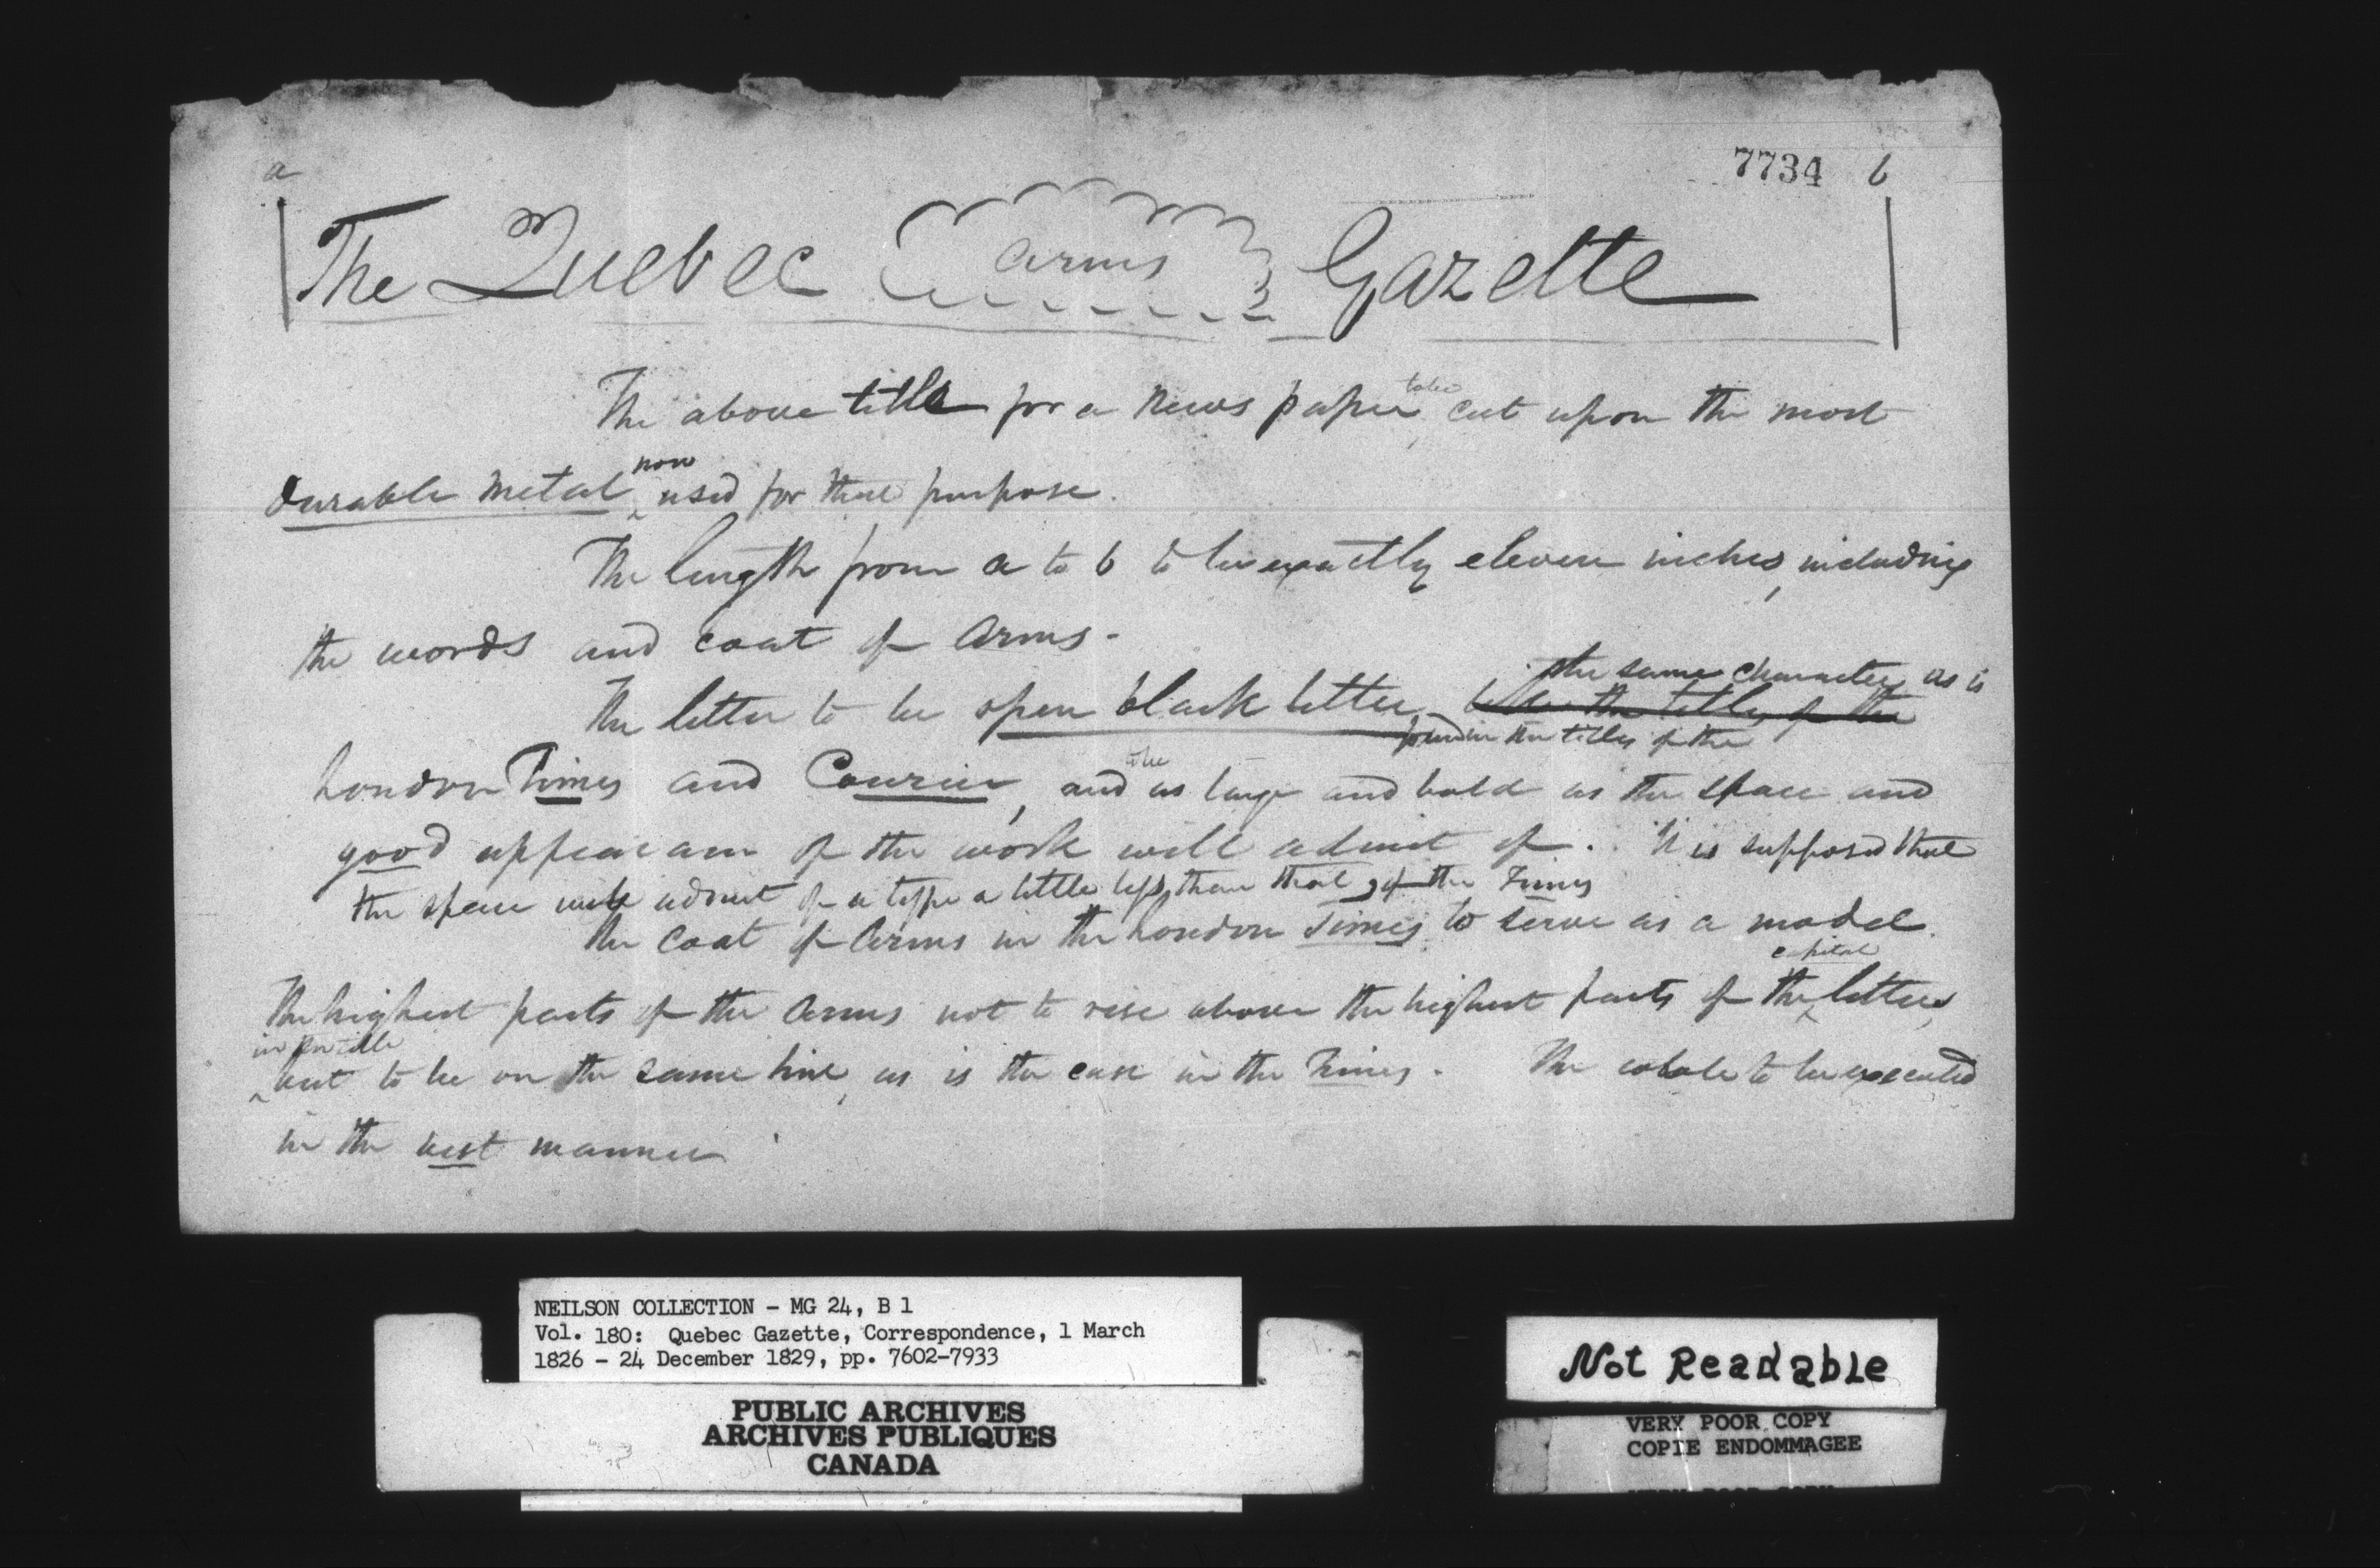 7734
a
b
The Quebec arms Gazette
The above title for a News paper to be cut upon the most
durable metal now used for that purpose.
The length from a to b to be exactly eleven inches, including
the words and coat of Arms -
the same character as is
The letter to be open black letter, like the titles of the
found in the titles of the
London Times and Courier, and to be as large and bold as the space and
good appearance of the work will admit of. It is supposed that
the space will admit of a type a little less than that of the Times
The Coat of Arms in the London Times to serve as a model.
capital
The highest parts of the Arms not to rise above the highest parts of the letters,
if possible
but to be on the same line, as is the case in the Times. The whole to be executed
in the best manner
NEILSON COLLECTION - MG 24, B 1
Vol. 180: Quebec Gazette, Correspondence, 1 March
1826 - 24 December 1829, pp. 7602-7933
PUBLIC ARCHIVES
ARCHIVES PUBLIQUES
CANADA
Not Readable
VERY POOR COPY
COPIE ENDOMMAGEE
VERY POOR COPY